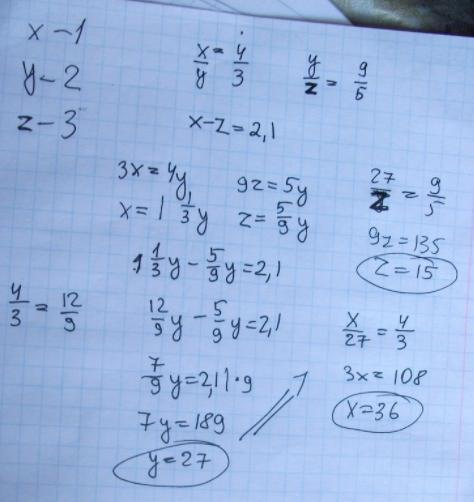 x - 1
y - 2
z - 3
x/y = 4/3
y/z = 9/5
x-z = 2,1
3x = 4y
x = 1 1/3 y
9z = 5y
z = 5/9 y
1 1/3 y - 5/9 y = 2,1
4/3 = 12/9
12/9 y - 5/9 y = 2,1
7/9 y = 2,1 | · 9
7y = 189
y = 27
27/z = 9/5
9z = 135
z = 15
x/27 = 4/3
3x = 108
x = 36